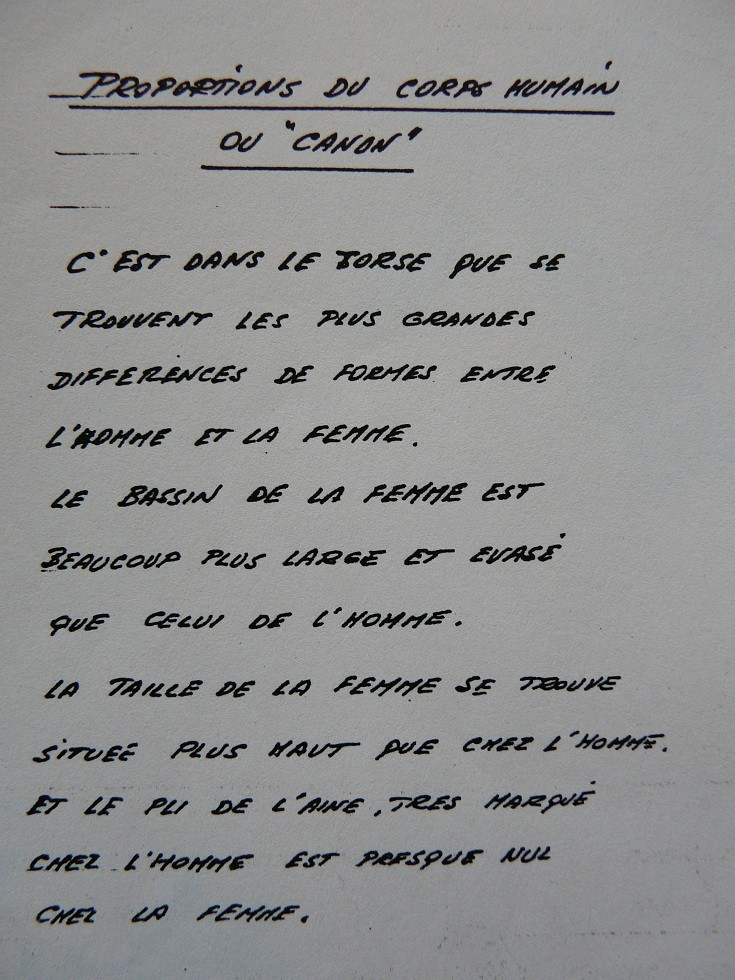 PROPORTIONS DU CORPS HUMAIN
OU "CANON"
C'EST DANS LE TORSE QUE SE
TROUVENT LES PLUS GRANDES
DIFFERENCES DE FORMES ENTRE
L'HOMME ET LA FEMME.
LE BASSIN DE LA FEMME EST
BEAUCOUP PLUS LARGE ET EVASÉ
QUE CELUI DE L'HOMME.
LA TAILLE DE LA FEMME SE TROUVE
SITUEÉ PLUS HAUT QUE CHEZ L'HOMME.
ET LE PLI DE L'AINE, TRES MARQUÉ
CHEZ L'HOMME EST PRESQUE NUL
CHEZ LA FEMME.